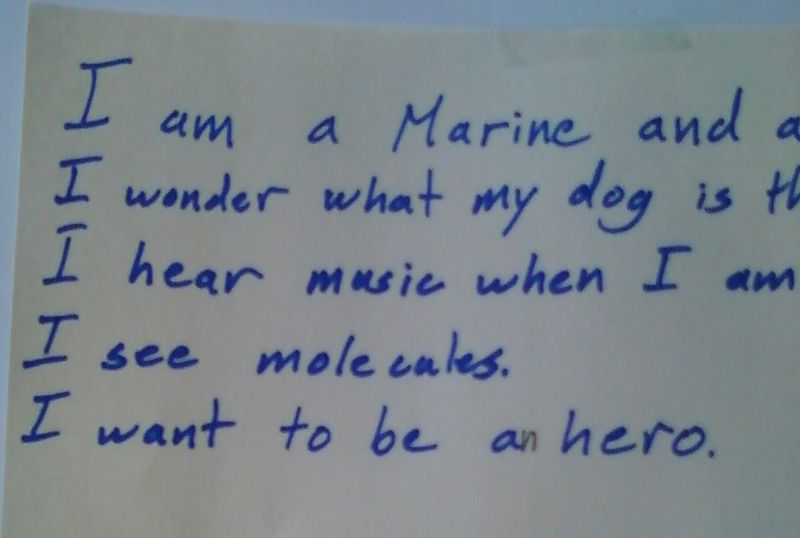 I am a Marine and a
I wonder what my dog is th
I hear music when I am
I see molecules.
I want to be an hero.